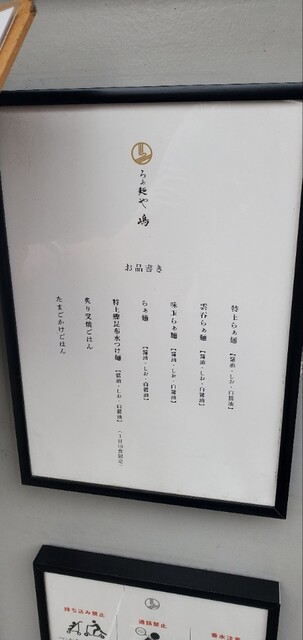 らぁ麺や 嶋
お品書き
特上らぁ麺【醤油・しお・白醤油】
雲呑らぁ麺【醤油・しお・白醤油】
味玉らぁ麺【醤油・しお・白醤油】
らぁ麺【醤油・しお・白醤油】
特上鰹昆布水つけ麺【醤油・しお・白醤油】
炙り叉焼ごはん
たまごかけごはん
持ち込み禁止
通話禁止
香水注意